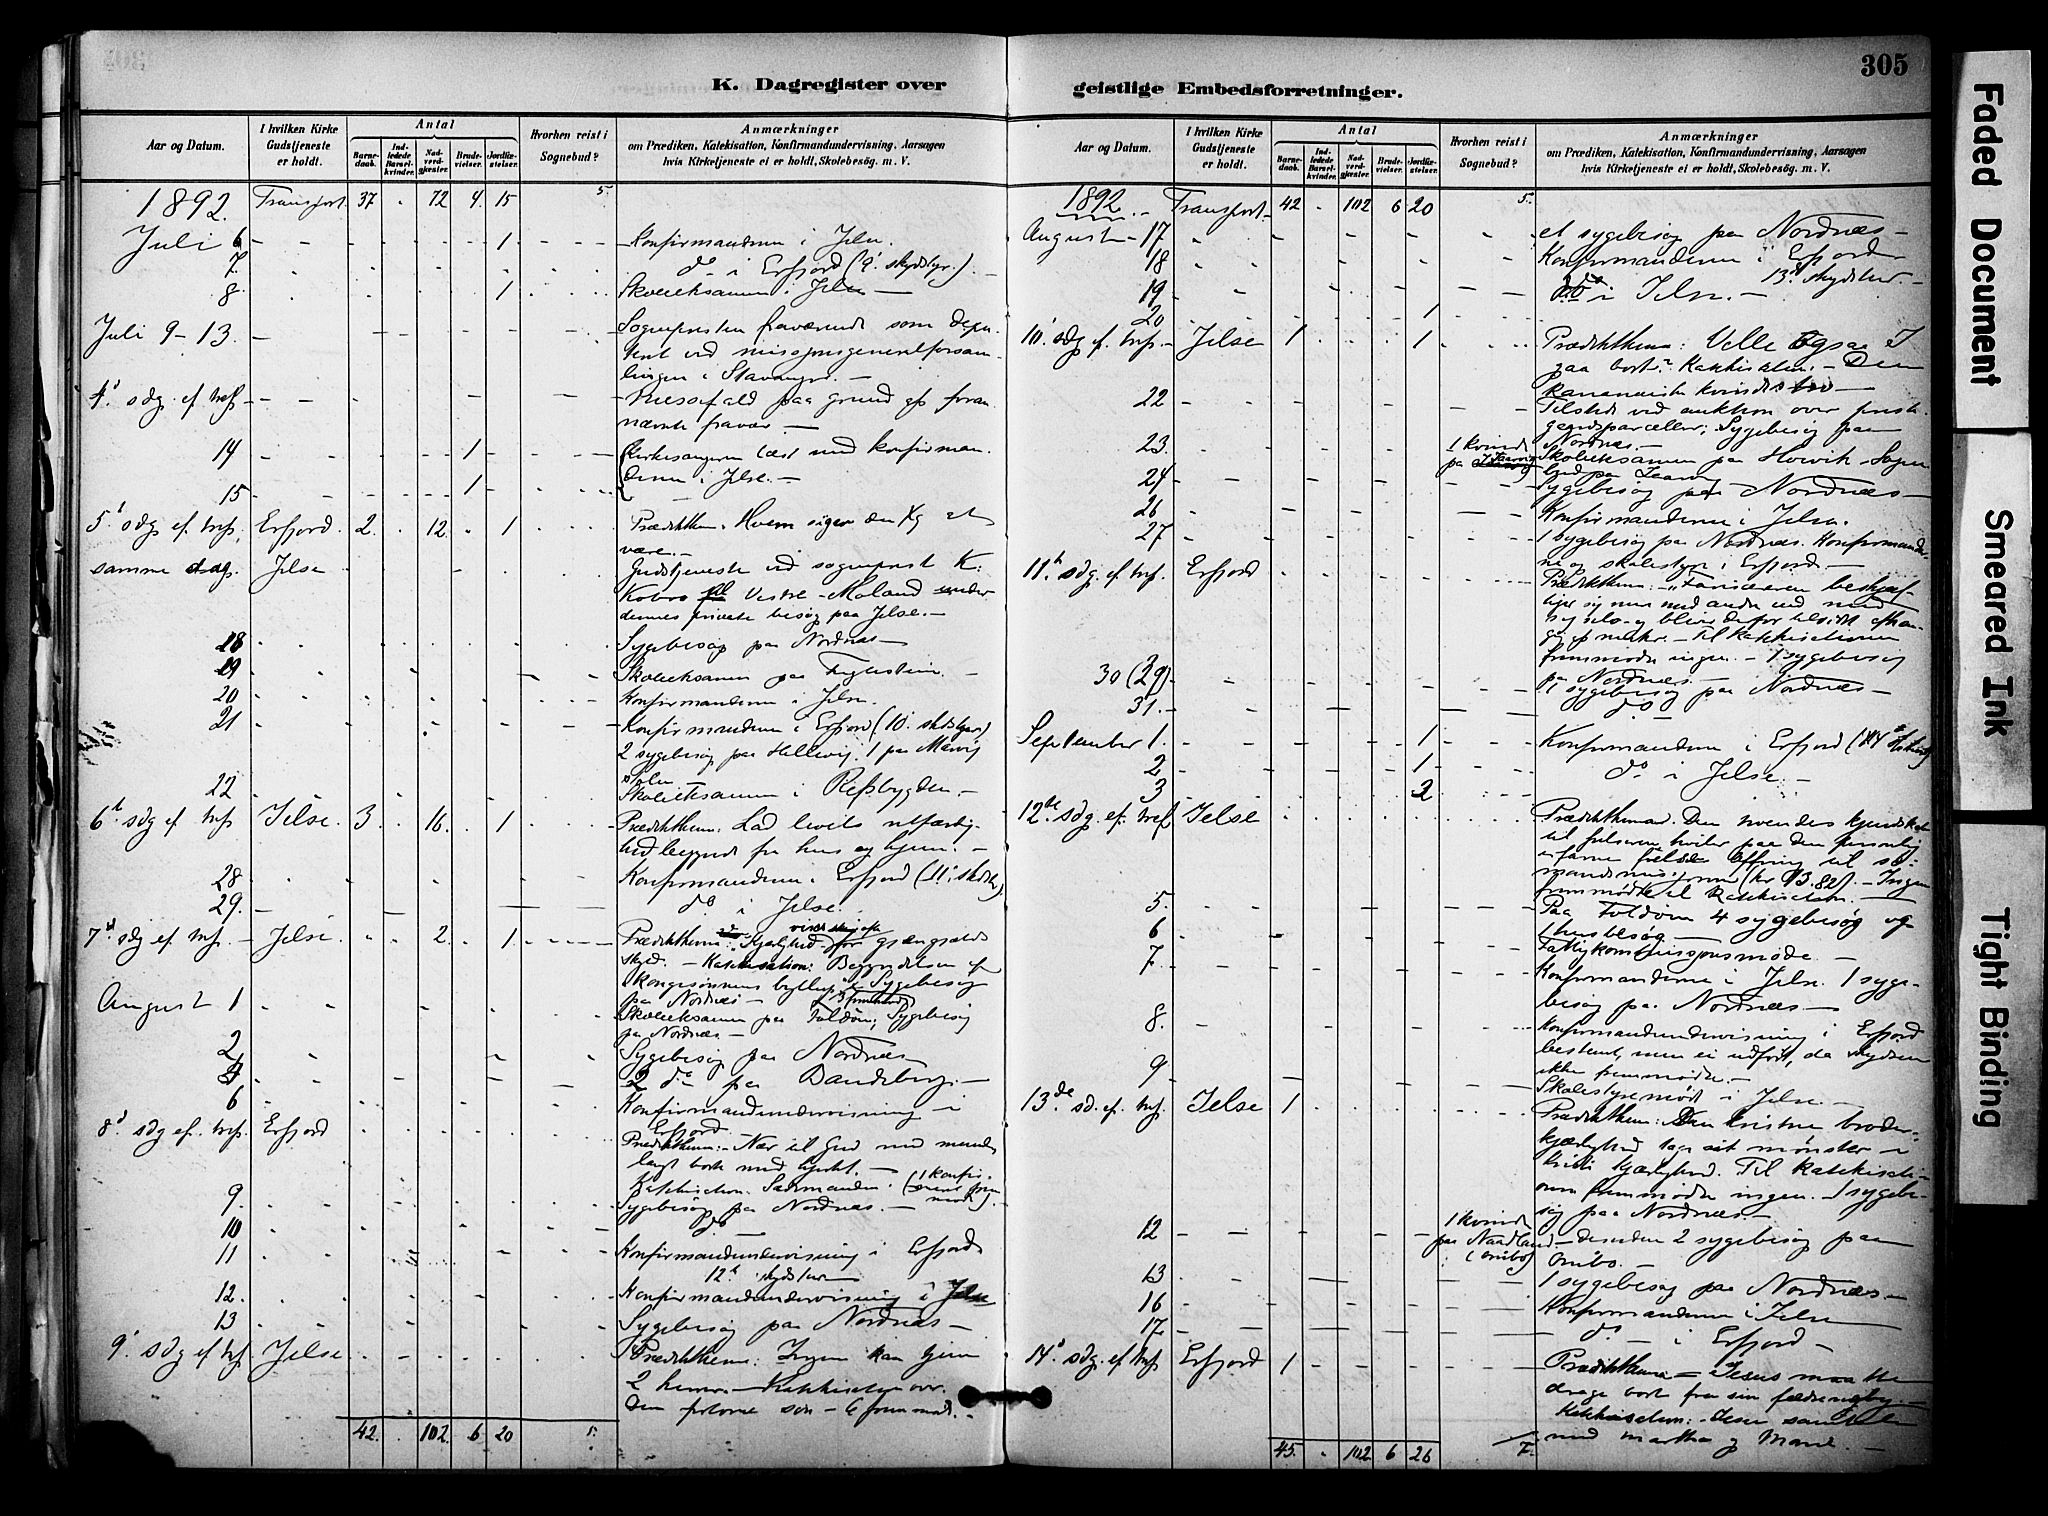 305
K. Dagregister over geistlige Embedsforretninger.
Aar og Datum.
I hvilken Kirke Gudstjeneste er holdt.
Antal
Barnedaab.
Indledede Barselkvinder.
Nadverdgjæster.
Brudevielser.
Jordfæstelser.
Hvorhen reist i Sognebud?
Anmærkninger
om Prædiken, Katekisation, Konfirmandundervisning, Aarsagen
hvis Kirketjeneste ei er holdt, Skolebesøg. m. V.
1892. Transport 37 . 72 4. 15 5.
Juli 6 1 Konfirmanderne i Jelse.
7. do i Erfjord (9. skydstyr.).
8 1 Skoleeksamen i Jelse
Juli 9-13. Sognepresten fraværende som depu-
tent ved missjonsgeneralforsam-
lingen i Stavanger.
4. sdg ef tref Messefald paa grund af foran-
nævnte fravær.
14 1 Kirkesangeren læst med konfirman-
15 1 derne i Jelse.
5. sdg ef. tref. Erfjord. 2. 12. 1 Prædikthem. Hvem siger du jeg at
være.
samme dag. Jelse Gudstjeneste ved sogneprest K.
Kobro Vestre-Moland under
dennes private besøg paa Jelse.
18 Sygebesøg paa Nordnæs
19 Skoleeksamen paa
20 Konfirmanderne i Jelse.
21 Konfirmanderne i Erfjord (10.
2 sygebesøg paa Hellevig. 1 paa
22 Skoleeksamen i Refsbygden.
6t sdg ef tref Jelse. 3. 16. 1 Prædikthem: Lad livets retfærdig-
hed begynde fra hus og hjem.
28 Konfirmanderne i Erfjord (11.
29. do i Jelse.
7d sdg ef tref. Jelse. 2. 1 Prædikthem: Kjærlighed
Katekisation: Begyndelsen af
kongesønnens bryllup. Sygebesøg
paa Nordnæs
August 1 Skoleeksamen paa Foldøen; Sygebesøg
paa Nordnæs
2 Sygebesøg paa Nordnæs
4 2 do paa Bandeberg.
6 Konfirmandundervisning i
Erfjord
8. sdg ef. tref. Erfjord Prædikthem: Nær til Gud med munden
langt borte med hjertet.
Katekisation. Sædemanden. (1 konfir-
9. Sygebesøg paa Nordnæs.
10 do
11 Konfirmandundervisning i Erfjord
12t skydstur
12. Konfirmandundervisning i Jelse
13 Sygebesøg paa Nordnæs
9. sdg ef tref Jelse Prædikthem: Ingen kan tjene
2 herrer. Katekisation over.
Den fortorne søn - 6 frem mødt.
42. . 102. 6 20 5.
Aar og Datum.
I hvilken Kirke Gudstjeneste er holdt.
Antal
Barnedaab.
Indledede Barselkvinder.
Nadverdgjæster.
Brudevielser.
Jordfæstelser.
Hvorhen reist i Sognebud?
Anmærkninger
om Prædiken, Katekisation, Konfirmandundervisning, Aarsagen
hvis Kirketjeneste ei er holdt, Skolebesøg. m. V.
1892. Transport 42 . 102 6 20 5.
August 17 et sygebesøg paa Nordnæs
18 Konfirmanderne i Erfjord
13d skydstur.
19 do i Jelse.
20 1
10. sdg ef. tref. Jelse 1 1 Prædikthem: Ville ogsaa I
gaa bort? Katekisation. Den
kananæiske kvindes bøn
22 Tilsted ved auktion over preste-
gaardsparceller; Sygebesøg paa
Nordnæs.
23. 1 kvinde paa Skoleeksamen paa Hovvik.
24 Sygebesøg paa Nordnæs
26 Konfirmanderne i Jelse.
27 1 sygebesøg paa Nordnæs. Konfirmander-
ne og skolestyre i Erfjord.
11t. sdg. ef. tref. Erfjord Prædikthem: Farisæeren beskjæf-
tiger sig mer med andre end med
sig selv og bliver derfor
Til katekisationen
fremmødte ingen. 1 sygebesøg
paa Nordnæs.
30 (29) 1 sygebesøg paa Nordnæs
31. do
September 1. 1 Konfirmanderne i Erfjord (14
2 1 do i Jelse.
3 2
12te sdg. ef. tref Jelse Prædikthema. Den troendes kjendskab
til frelseren hviler paa den personlig
erfarne frelse Offring til sø-
mandsmissjonen (kr 13,82). Ingen
fremmødte til katekisation.
5. Paa Foldøen 4 sygebesøg og
1 husbesøg
6 Fattigkommissjonsmøde.
7. Konfirmanderne i Jelse. 1 syge-
besøg paa Nordnæs
8. Konfirmandundervisning i Erfjord
bestemt, men ei udført, da skydsen
ikke fremmødte.
9 Skolestyremøde i Jelse.
13de sd. ef. tref. Jelse 1 Prædikthem: Den kristne broder-
kjærlighed tage sit mønster i
Kristi kjærlighed. Til katekisati-
onen fremmødte ingen. 1 sygebe-
søg paa Nordnæs.
12 1 kvinde paa Nardland (Ombo) desuden 2 sygebesøg paa
Ombo.
13 1 sygebesøg paa Nordnæs
16 Konfirmanderne i Jelse
17. do i Erfjord
14. sdg. ef. tref. Erfjord 1 Prædikthema Jesus maatte
drage bort fra sin fædreneby
Katekisation: Jesu samtale
med Martha og Marie.
45. . 102. 6 26 7.
Faded Document
Smeared Ink
Tight Binding